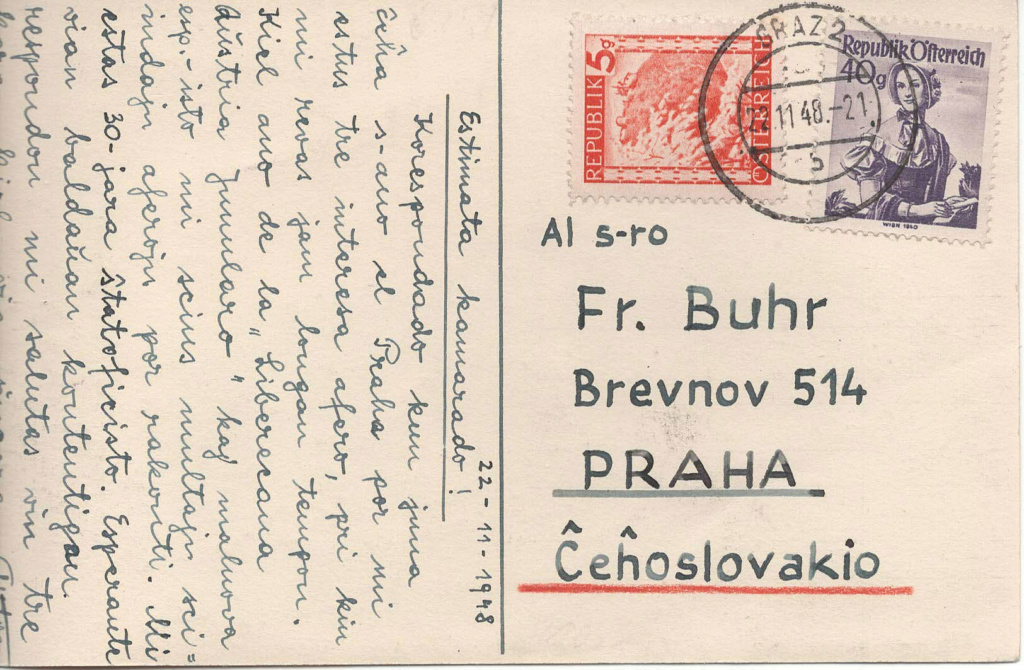 22-11-1948
Estimata kamarado!
Korespondado kun juna
ĉeĥa s-ano el Praha por mi
estus tre interesa afero, pri kiu
mi revas jam longan tempon.
Kiel ano de la „Liberecana
Aŭstria Junularo" kaj malnova
esp-isto mi scius multajn sci=
indajn aferojn por rakonti. Mi
estas 30-jara ŝtatoficisto. Esperante
vian baldaŭan kontentigan
respondon mi salutas vin tre
REPUBLIK 5g
ÖSTERREICH
Republik Österreich
40g
WIEN 1840
GRAZ 2
22.11.48.-21
b
Al s-ro
Fr. Buhr
Brevnov 514
PRAHA
Ĉeĥoslovakio